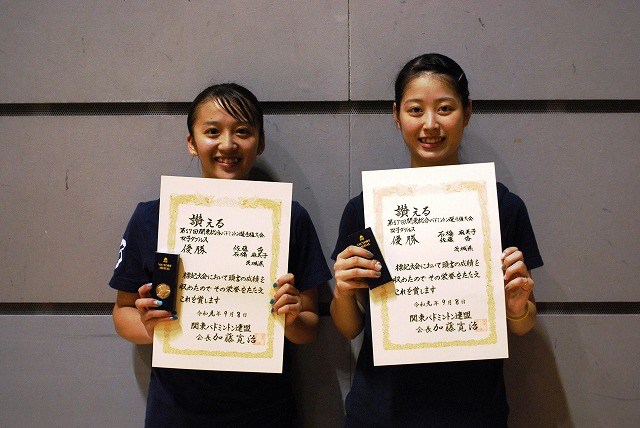 讃える
第57回関東総合バドミントン選手権大会
女子ダブルス
優勝
佐藤 杏
石橋 麻美子
茨城県
標記大会において頭書の成績を
収めたので その栄誉をたたえ
これを賞します
令和元年9月8日
関東バドミントン連盟
会長 加藤寛治
讃える
第57回関東総合バドミントン選手権大会
女子ダブルス
優勝
石橋 麻美子
佐藤 杏
茨城県
標記大会において頭書の成績を
収めたので その栄誉をたたえ
これを賞します
令和元年9月8日
関東バドミントン連盟
会長 加藤寛治